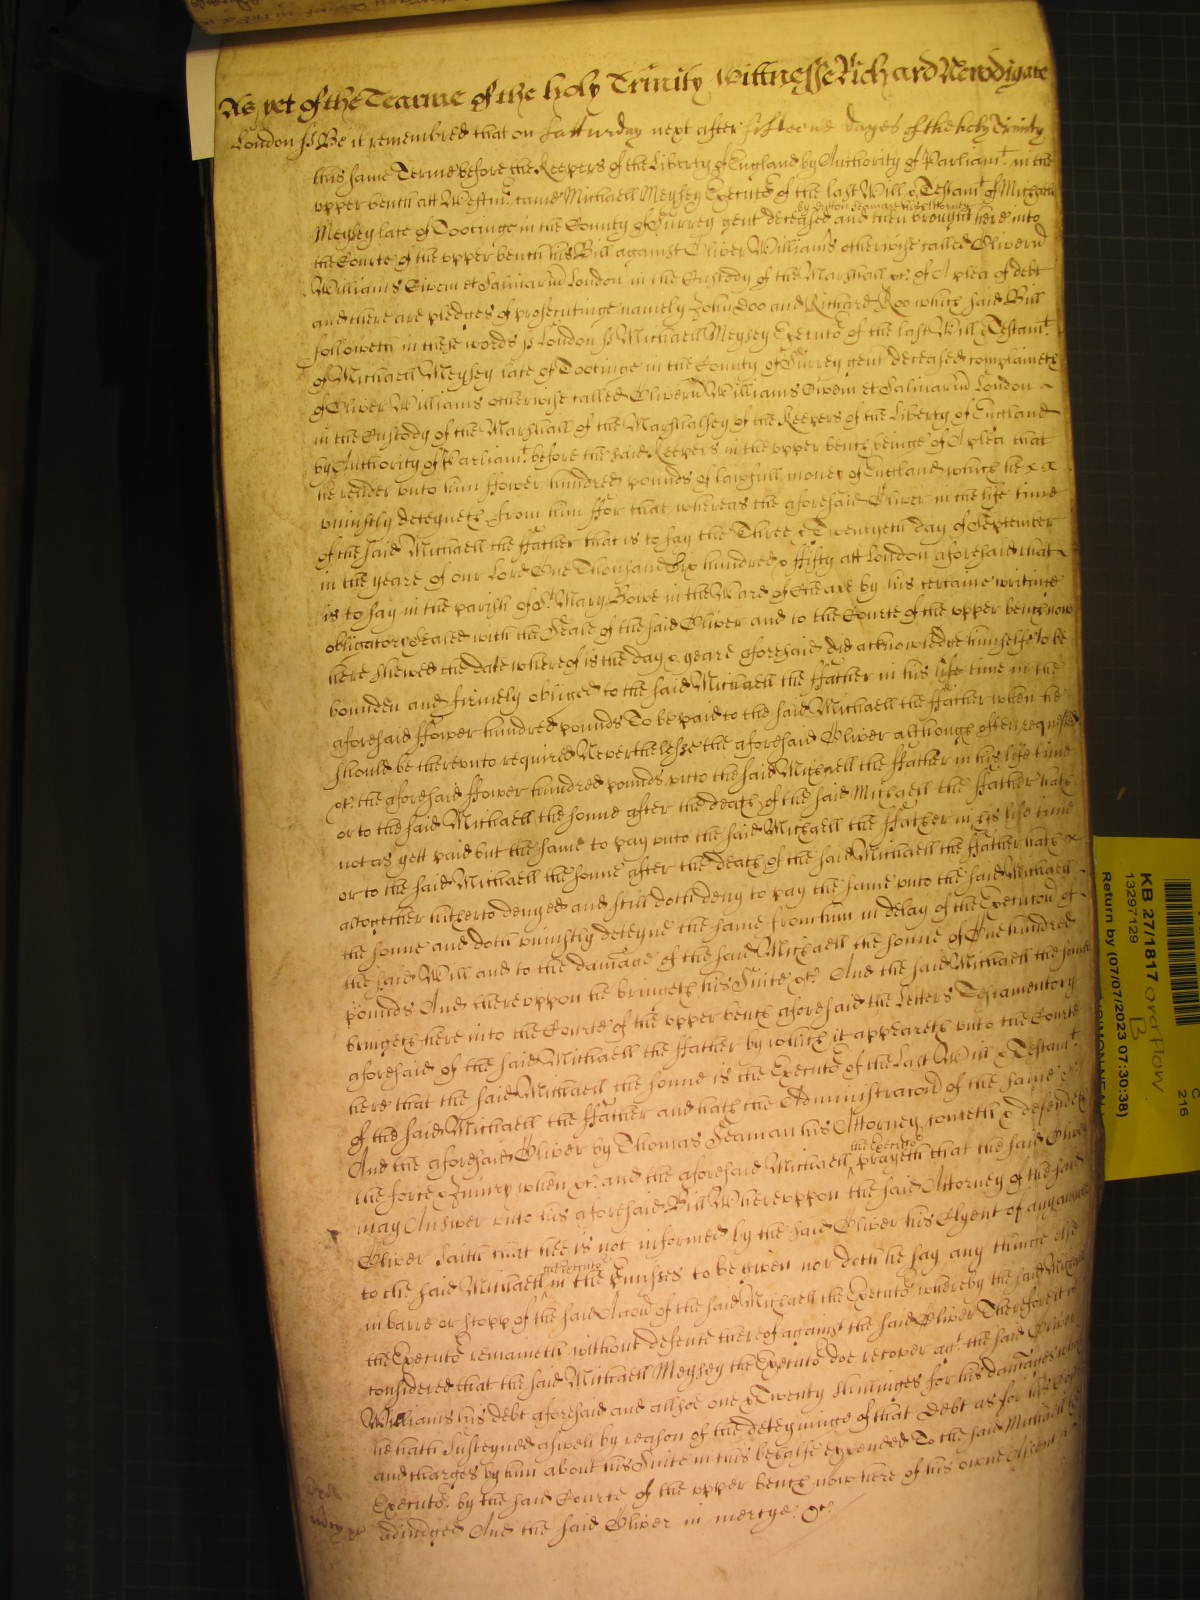 As yet of the Tearme of the holy Trinity Wittnesse Richard Newdigate
London ss Be it remembred that on Satturday next after fifteene dayes of the holy Trinity
this same Terme before the Keepers of the Liberty of England by Authority of Parliamt. in the
upper bench att Westmr. came Michaell Meysey Executor of the last Will & Testamt of Michaell
by Dutton Seaman his Attorney
Meysey late of Tootinge in the County of Surrey gent deceased and then brought here into
the Courte of the upper bench his Bill against Oliver Williams otherwise called Oliverū
Williams Civem et Salinariū London in the Custody of the Marshall &c. of A plea of debt
and there are pledges of prosecutinge namely John Doo and Richard Roo which said Bill
followeth in these words ss London ss Michaell Meysey Executor of the last Will & Testamt.
of Michaell Meysey late of Tootinge in the County of Surrey gent deceased complaineth
of Oliver Williams otherwise called Oliverū Williams Civem et Salinariū London
in the Custody of the Marshall of the Marshalsey of the Keepers of the Liberty of England
by Authority of Parliamt. before the said Keepers in the upper bench beinge of A plea that
he render unto him ffower hundred pounds of lawfull money of England which he
uniustly deteyneth from him ffor that whereas the aforesaid Oliver in the life time
of the said Michaell the ffather that is to say the Three & Twentyeth day of September
in the yeare of our Lord One Thousand Six hundred & ffifty att London aforesaid that
is to say in the parish of St. Mary Bowe in the Ward of Cheape by his certaine writinge
obligatory Sealed with the Seale of the said Oliver and to the Courte of the upper bench now
here shewed the date whereof is the day & yeare aforesaid did acknowledge himselfe to be
bounden and firmely obliged to the said Michaell the ffather in his life time in the
aforesaid ffower hundred pounds To be paid to the said Michaell the ffather when he
should be thereunto required Neverthelesse the aforesaid Oliver although often requested
&c. the aforesaid ffower hundred pounds unto the said Michaell the ffather in his life time
or to the said Michaell the sonne after the death of the said Michaell the ffather hath
not as yett paid but the same to pay unto the said Michaell the ffather in his life time
or to the said Michaell the sonne after the death of the said Michaell the ffather hath
altogether hitherto denyed and still doth deny to pay the same unto the said Michaell
the sonne and doth uniustly deteyne the same from him in delay of the Execution of
the said Will and to the damage of the said Michaell the sonne of One hundred
pounds And thereuppon he bringeth his Suite &c. And the said Michaell the sonne
bringeth here into the Courte of the upper bench aforesaid the Letters Testamentory
aforesaid of the said Michaell the ffather by which it appeareth unto the Courte
here that the said Michaell the sonne is the Executor of the Last Will & Testamt.
of the said Michaell the ffather and hath the Administracon of the same &c.
And the aforesaid Oliver by Thomas Seaman his Attorney cometh & defendeth
the force & Iniury when &c. and the aforesaid Michaell the Executor prayeth that the said Oliver
may Answer unto his aforesaid Bill Whereuppon the said Attorney of the said
Oliver saith that hee is not informed by the said Oliver his Clyent of any answer
to the said Michaell the Executor in the Premisses to be given nor doth he say any thinge else
in barre or stopp of the said Accon of the said Michaell the Executor whereby the said Michaell
the Executor remaineth without defence thereof against the said Oliver Therefore it is
considered that the said Michaell Meysey the Executor doe recover agt. the said Oliver
Williams his debt aforesaid and allsoe one & Twenty shillinges for his damages which
he hath Susteyned aswell by reason of the deteyninge of that Debt as for his Costs
and charges by him about his Suite in this behalfe expended To the said Michaell the
Executor by the said Courte of the upper bench now here of his owne Assent
adiudged And the said Oliver in mercye &c.
KB 27/1817 overflow
B
13297129
Return by (07/07/2023 07:30:38)
216